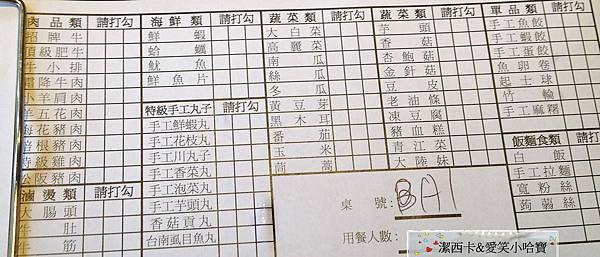 肉品類 請打勾
招牌牛
頂級肥牛
牛小排
霜降牛肉
小羊肩肉
羊五花肉
海花豬肉
培根豬肉
特級雞肉
松阪豬肉
滷燙類 請打勾
大腸頭
牛肚
牛筋
海鮮類 請打勾
鮮蝦
蛤蠣
魷魚
鮮魚片
特級手工丸子 請打勾
手工鮮蝦丸
手工花枝丸
手工川丸子
手工香菜丸
手工泡菜丸
手工芋頭丸
香菇貢丸
台南虱目魚丸
蔬菜類 請打勾
大白菜
高麗菜
南瓜
絲瓜
冬瓜
黃豆芽
黑木耳
番茄
玉米
茼蒿
蔬菜類 請打勾
芋頭
香菇
杏鮑菇
金針菇
豆皮
老油條
凍豆腐
豬血糕
青江菜
大陸妹
單品類 請打勾
手工魚餃
手工蝦餃
手工蛋餃
魚卵卷
起士球
竹輪
手工麻糬
飯麵食類 請打勾
白飯
手工拉麵
寬粉絲
蒟蒻絲
桌號:
用餐人數:
潔西卡&愛笑小哈寶